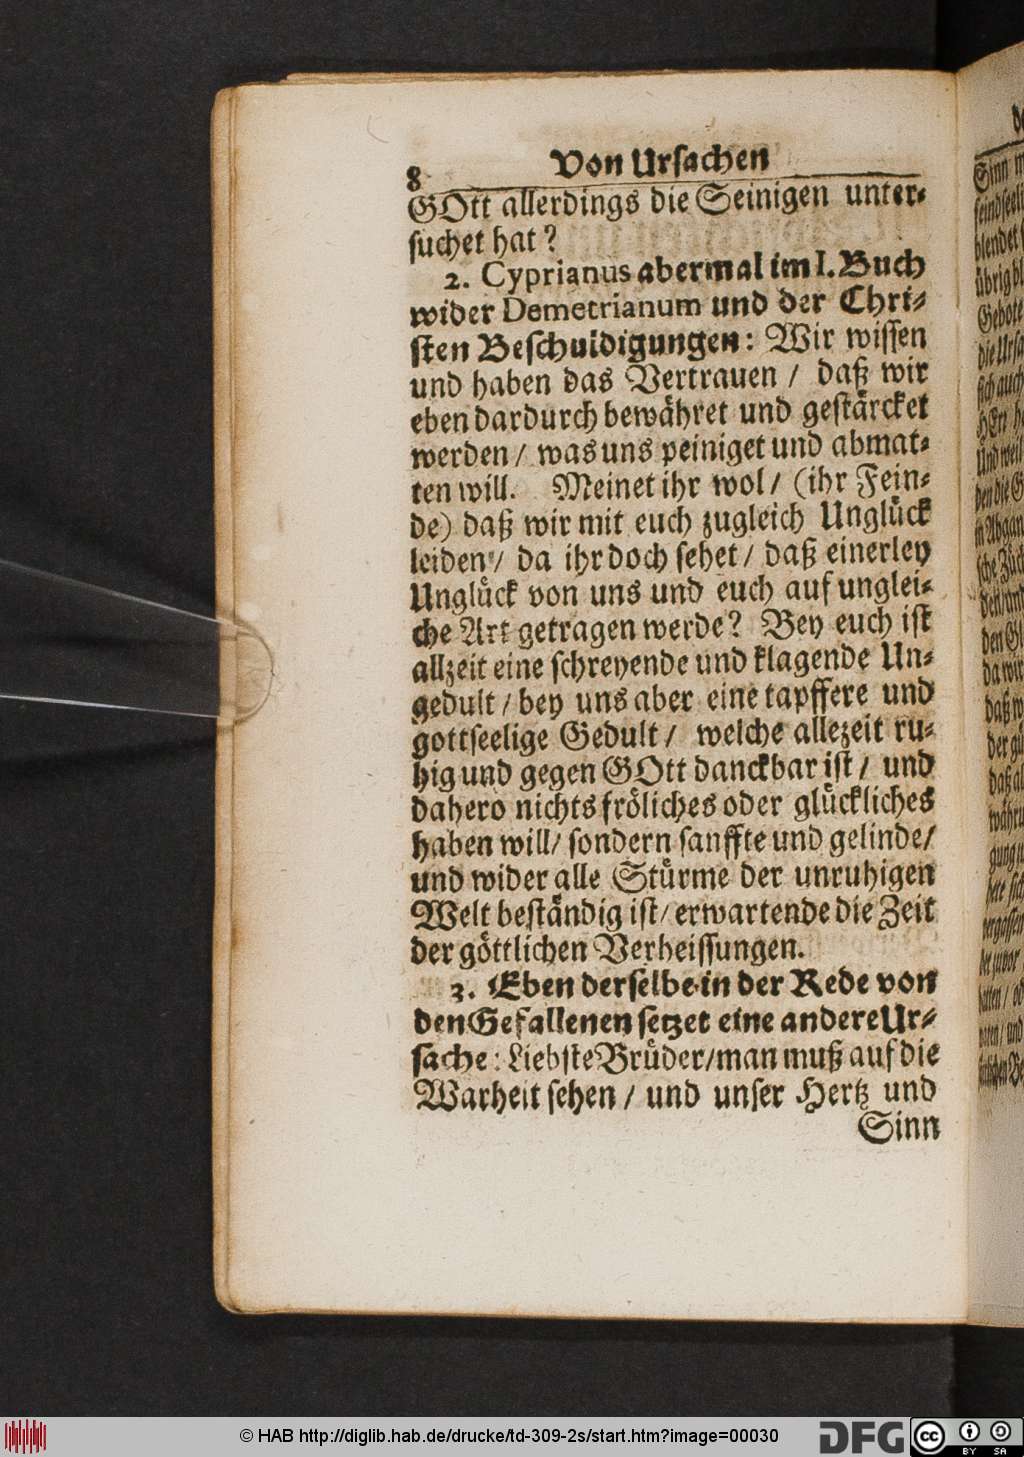 8 Von Ursachen
GOtt allerdings die Seinigen unter-
suchet hat?
2. Cyprianus abermal im I. Buch
wider Demetrianum und der Chri-
sten Beschuldigungen: Wir wissen
und haben das Vertrauen / daß wir
eben dardurch bewähret und gestärcket
werden / was uns peiniget und abmat-
ten will. Meinet ihr wol / (ihr Fein-
de) daß wir mit euch zugleich Unglück
leiden / da ihr doch sehet / daß einerley
Unglück von uns und euch auf unglei-
che Art getragen werde? Bey euch ist
allzeit eine schreyende und klagende Un-
gedult / bey uns aber eine tapffere und
gottseelige Gedult / welche allezeit ru-
hig und gegen GOtt danckbar ist / und
dahero nichts fröliches oder glückliches
haben will / sondern sanffte und gelinde /
und wider alle Stürme der unruhigen
Welt beständig ist / erwartende die Zeit
der göttlichen Verheissungen.
3. Eben derselbe in der Rede von
den Gefallenen setzet eine andere Ur-
sache: Liebste Brüder / man muß auf die
Warheit sehen / und unser Hertz und
Sinn
© HAB http://diglib.hab.de/drucke/td-309-2s/start.htm?image=00030
DFG
cc BY SA